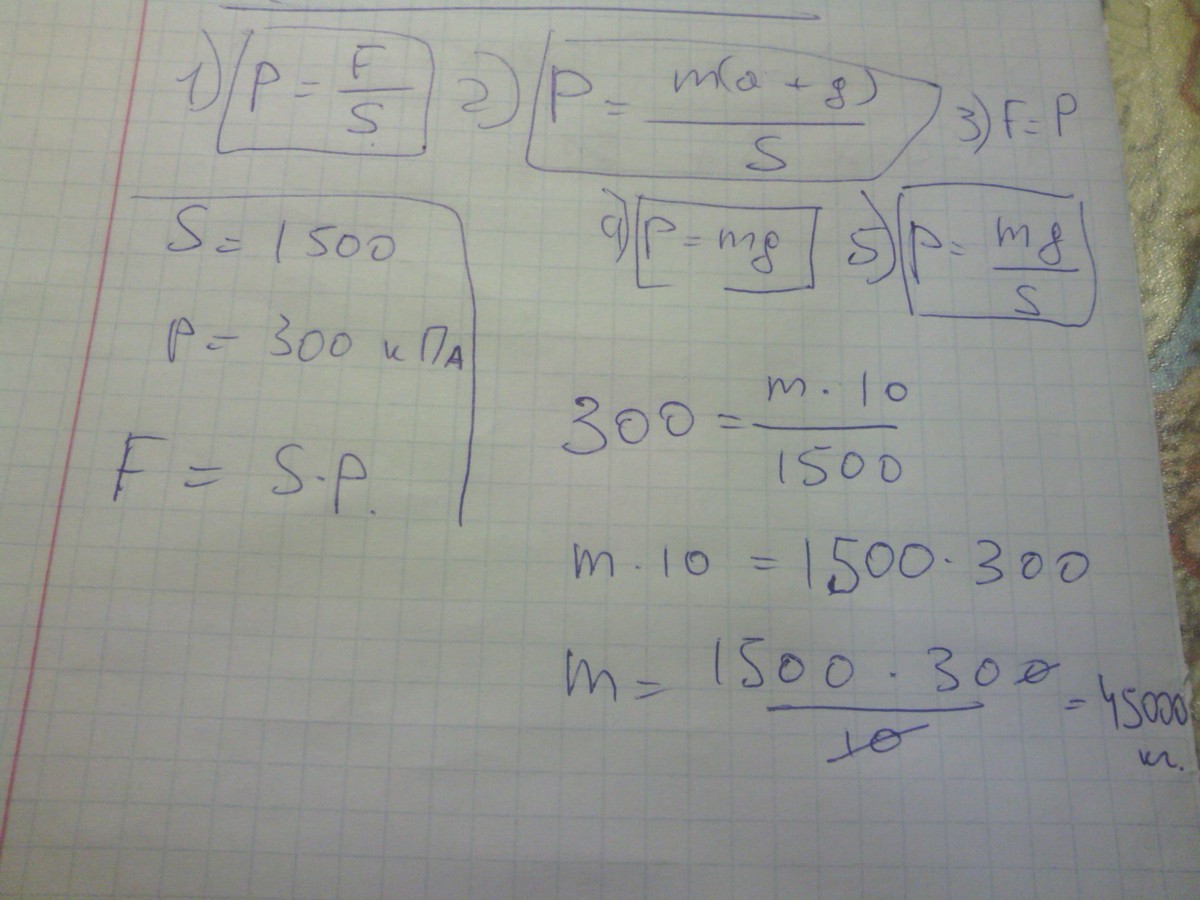 1) P = F/S 2) P = m(a + g)/S 3) F = P
4) P = mg 5) P = mg/S
S = 1500
P = 300 кПА
F = S·P.
300 = m · 10/1500
m · 10 = 1500 · 300
m = 1500 · 300/10 = 45000 кг.